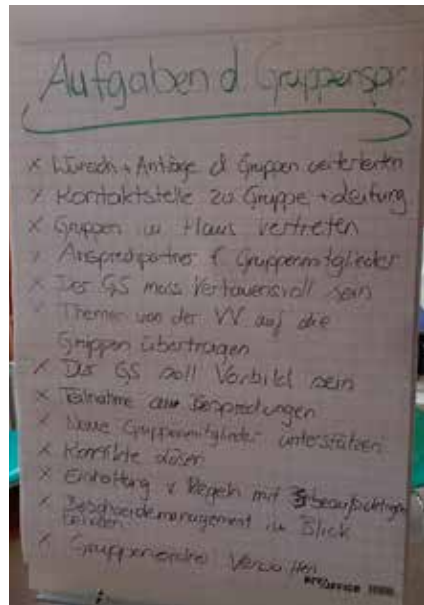 Aufgaben d. Gruppenspr.
x Wünsch + Anträge d Gruppen
x Kontaktstelle zu Gruppe + Leitung
x Gruppen im Haus vertreten
x Ansprechpartner f Gruppenmitglieder
x Der GS muss Vertauensvoll sein
x Themen von der VV auf die
Gruppen übertragen
x Der GS soll Vorbild sein
x Teilnahme an Besprechungen
x Neue Gruppenmitglieder unterstützen
x Konflikte lösen
x Einhaltung v Regeln mit beaufsichtigen
x Beschwerdemanagement im Blick
x Verwalten